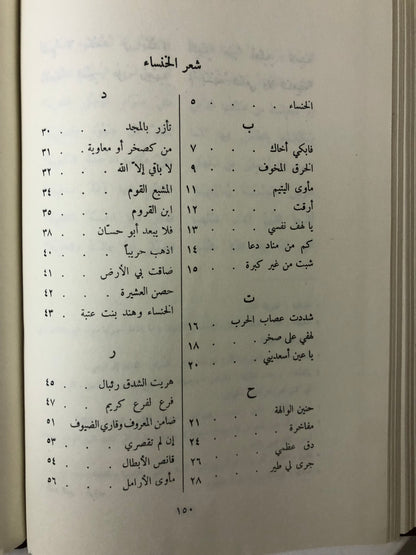 شعر الخنساء
الخنساء . . . . ٥
ب
فابكي أخاك . . . ٧
الخرق المخوف . . . ٩
مأوى اليتيم . . . ١١
أرقت . . . . ١٢
يا لهف نفسي . . . ١٣
كم من مناد دعا . . ١٤
شبت من غير كبرة . . ١٥
ت
شددت عصاب الحرب . ١٦
لهفي على صخر . . . ١٨
يا عين أسعديني . . ٢٠
ح
حنين الوالهة . . .
مفاخرة . . . . ٢١
دق عظمي . . . ٢٤
جرى لي طير . . . ٢٦
٢٨
د
تأزر بالمجد . . . ٣٠
من كصخر أو معاوية . . ٣١
لا باقي إلاّ الله . . ٣٢
المشبع القوم . . . ٣٤
ابن القروم . . . ٣٥
فلا يبعد أبو حسّان . . ٣٨
اذهب حريباً . . . ٤٠
ضاقت بي الأرض . . ٤١
حصن العشيرة . . . ٤٢
الخنساء وهند بنت عتبة . ٤٣
ر
هريت الشدق رئبال . . ٤٥
فرع لفرع كريم . . ٤٧
ضامن المعروف وقاري الضيوف ٥١
إن لم تقصري . . . ٥٣
قانص الأبطال . . . ٥٤
مأوى الأرامل . . . ٥٦
١٥٠